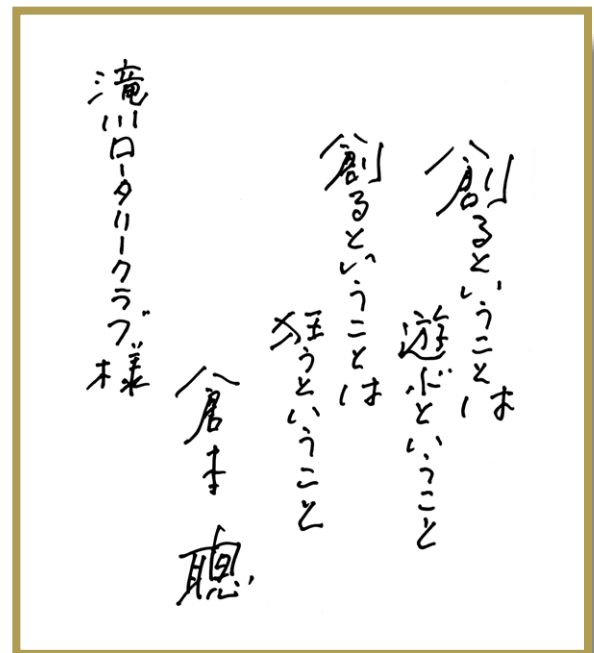 創るということは
遊ぶということ
創るということは
狂うということ
倉本 聰
滝川ロータリークラブ様